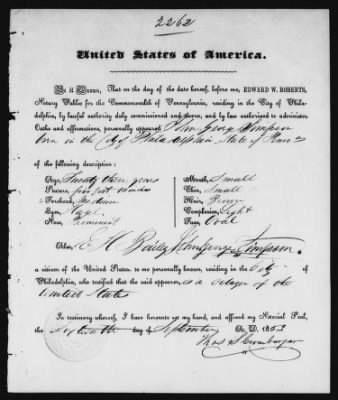 2262
United States of America.
Be it Known, That on the day of the date hereof, before me, EDWARD W. ROBERTS,
Notary Public for the Commonwealth of Pennsylvania, residing in the City of Phila-
delphia, by lawful authority duly commissioned and sworn, and by law authorized to administer
Oaths and affirmations, personally appeared John George Simpson
born in the City of Philadelphia State of
of the following description:
Age, Twenty three years Mouth, Small
Stature, five feet inches Chin, Small
Forehead, Medium Hair, Brown
Eyes, Hazel Complexion, Light
Nose, Prominent Face, Oval
Also, E H Baily John George Simpson.
a citizen of the United States, to me personally known, residing in the City
of Philadelphia, who testified that the said appearer, is a citizen of the
United States
In testimony whereof, I have hereunto set my hand, and affixed my Notarial Seal,
the day of September A. D. 185